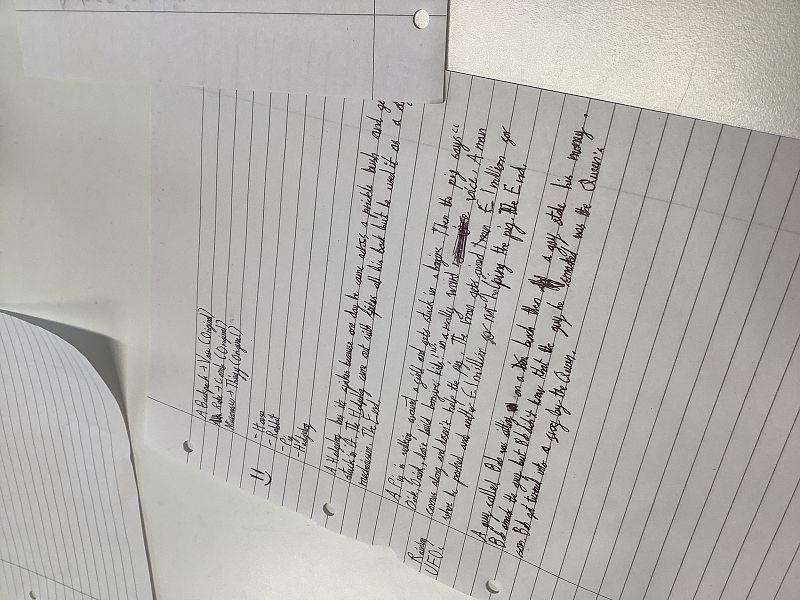 A Backpack + Vase (Original)
Cake + Comb (Original)
+ Thingy (Original)
- Horse
- Rabbit
- Pig
- Hedgehog
A Hedgehog has its spikes because one day he came across a prickle bush and
stuck in it. The Hedgehog came out with spikes all his back but he used it as a
mechanism. The End.
A Pig is walking around a field and gets stuck in a bog. Then the pig says "
Oink, Oink, don't back kids," in a really weird voice. A man
comes along and doesn't help the pig. The man gets fined £1 million for
where he parked and another £1 million for not helping the pig. The End.
Random
UFOs
A guy called Bob was sitting on a bench then a guy stole his money,
Bob the guy but Bob didn't know that the guy he was the Queen's
son. Bob got turned into a frog by the Queen.